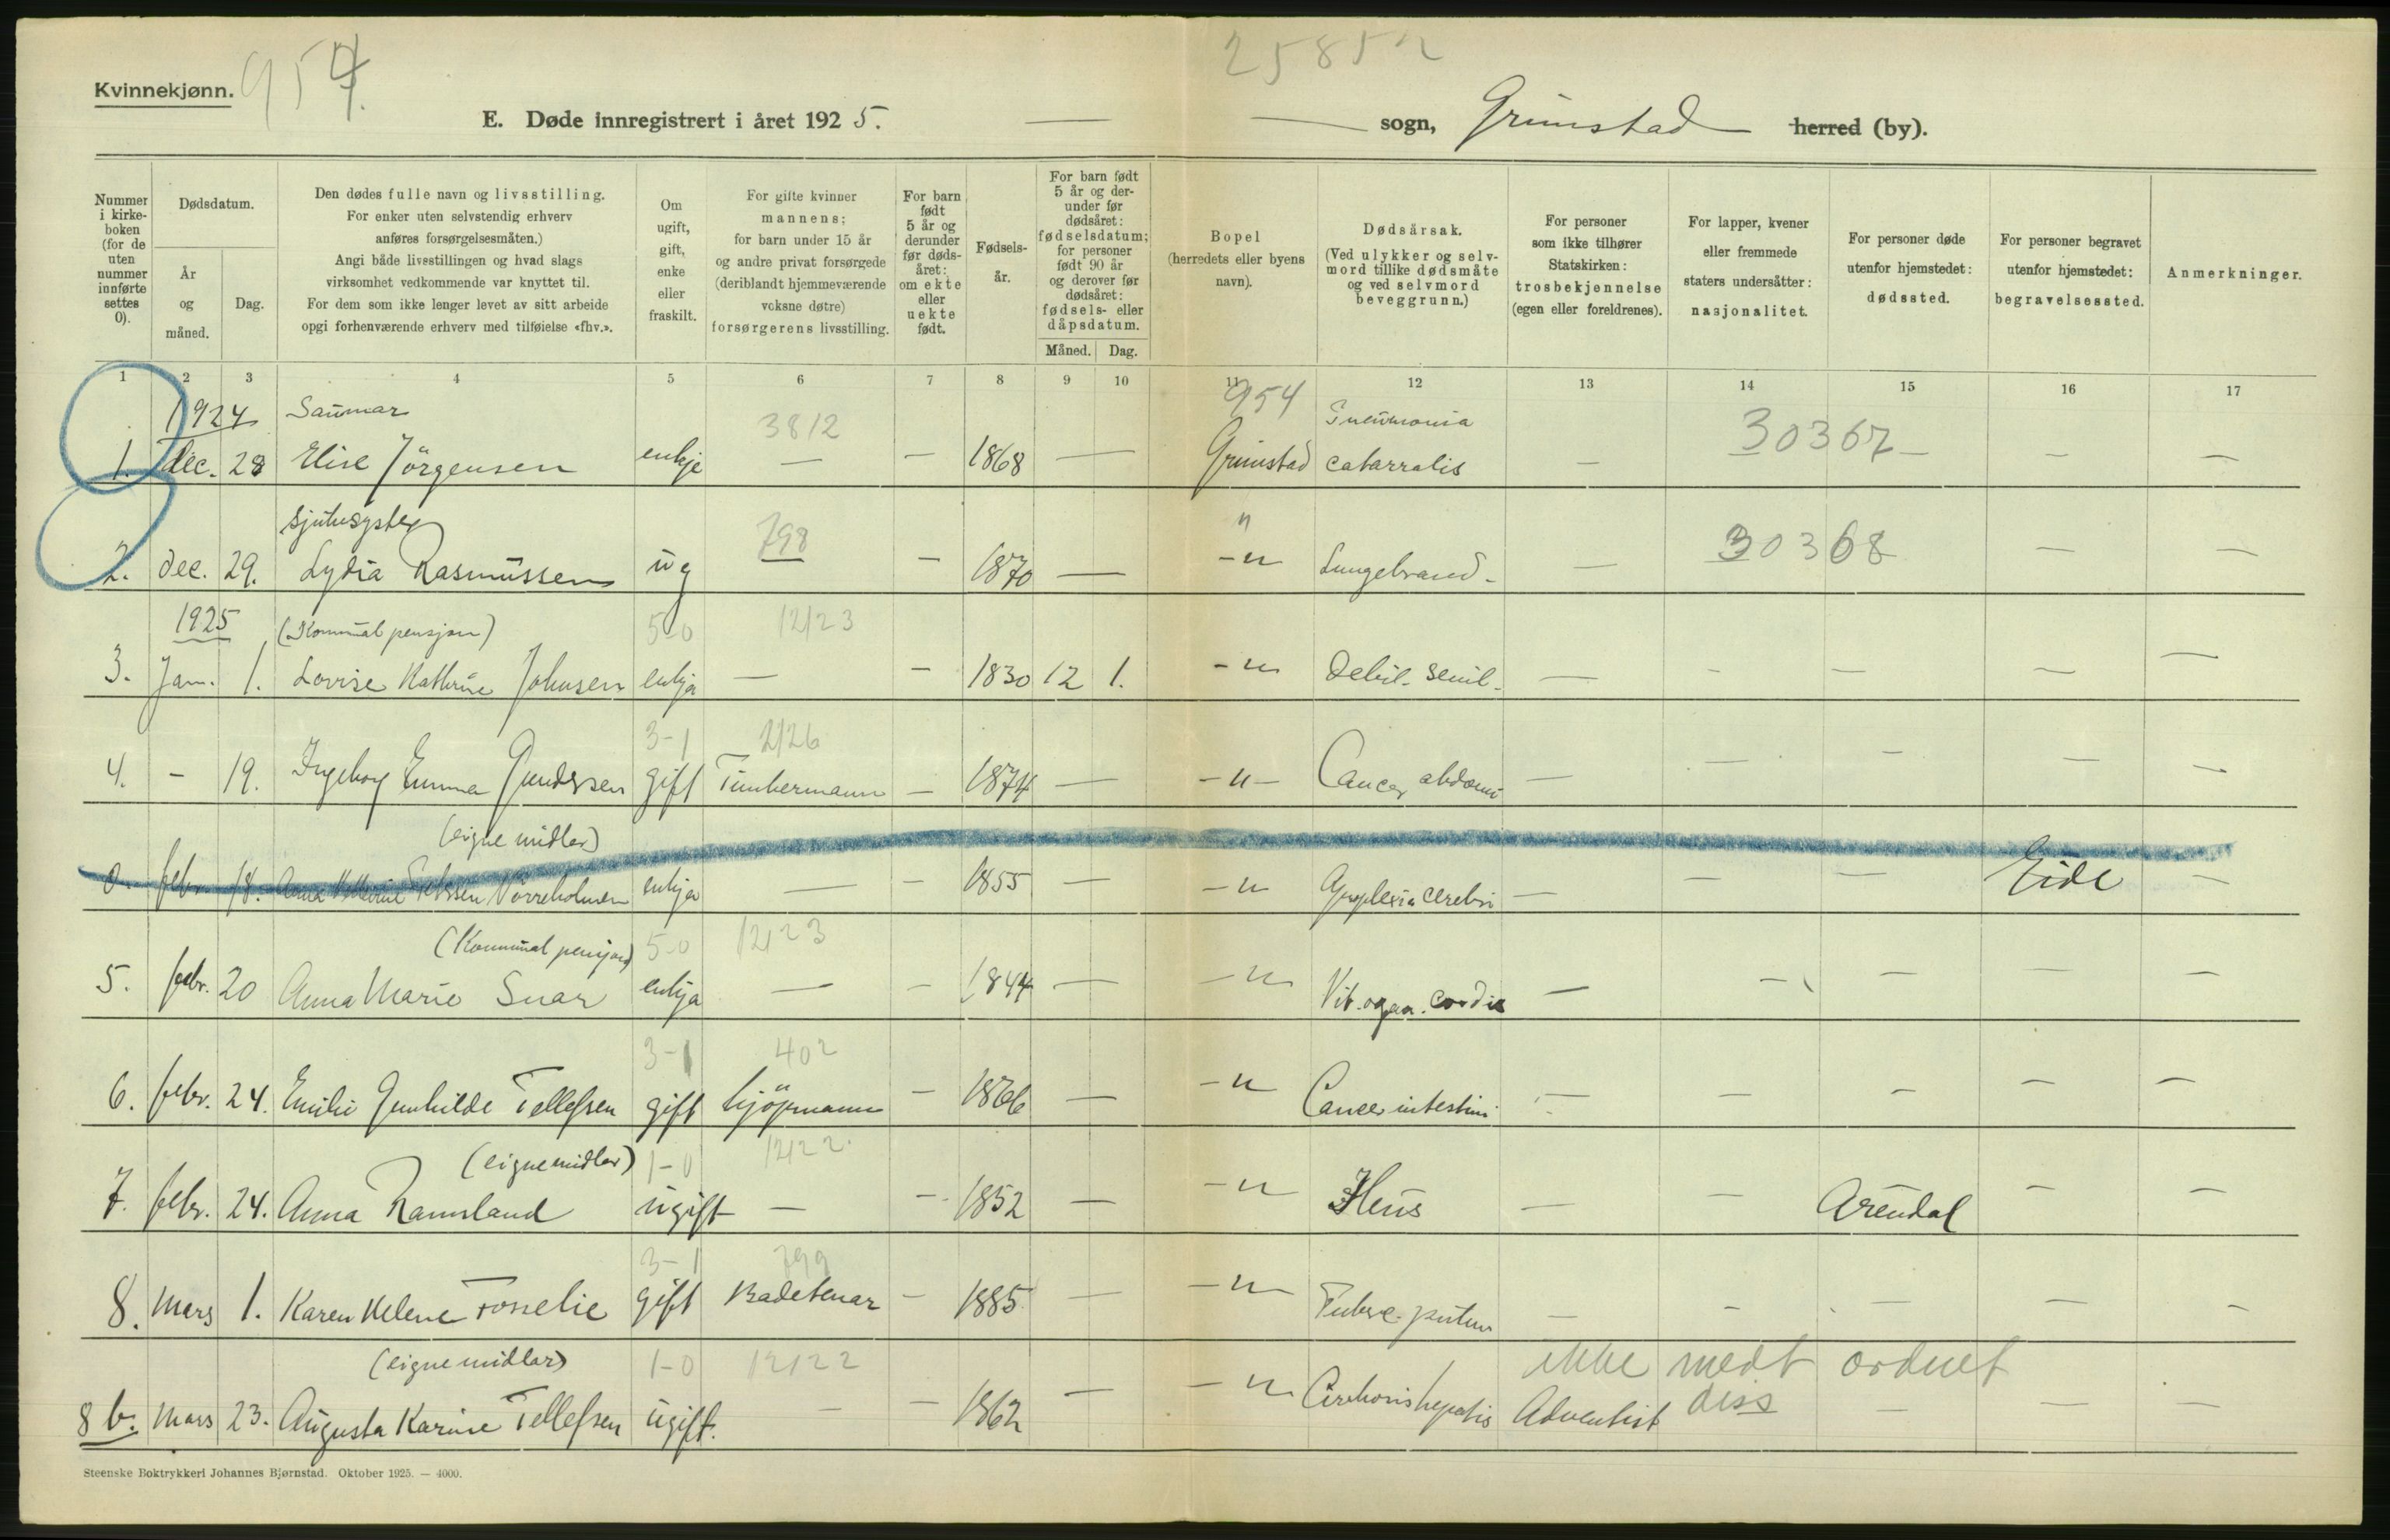 Kvinnekjønn. 954.
25852
E. Døde innregistrert i året 1925. — — sogn, Grimstad herred (by).
Nummer i kirke-boken (for de uten nummer innførte settes 0).
Dødsdatum.
År og måned.
Dag.
Den dødes fulle navn og livsstilling.
For enker uten selvstendig erhverv anføres forsørgelsesmåten.)
Angi både livsstillingen og hvad slags virksomhet vedkommende var knyttet til.
For dem som ikke lenger levet av sitt arbeide opgi forhenværende erhverv med tilføielse «fhv.».
Om ugift, gift, enke eller fraskilt.
For gifte kvinner mannens; for barn under 15 år og andre privat forsørgede (deriblandt hjemmeværende voksne døtre) forsørgerens livsstilling.
For barn født 5 år og derunder før døds-året: om ekte eller uekte født.
Fødsels-år.
For barn født 5 år og der-under før dødsåret: fødselsdatum; for personer født 90 år og derover før dødsåret: fødsels- eller dåpsdatum.
Måned. Dag.
Bopel (herredets eller byens navn).
Dødsårsak.
(Ved ulykker og selv-mord tillike dødsmåte og ved selvmord beveggrunn.)
For personer som ikke tilhører Statskirken: trosbekjennelse (egen eller foreldrenes).
For lapper, kvener eller fremmede staters undersåtter: nasjonalitet.
For personer døde utenfor hjemstedet: dødssted.
For personer begravet utenfor hjemstedet: begravelsessted.
Anmerkninger.
1 2 3 4 5 6 7 8 9 10 11 12 13 14 15 16 17
1924 Saumar 3812 954 Pneumonia 30367
1. dec. 28 Elise Jörgensen enkje — — 1868 — Grimstad catarralis — — — —
sjukesyster 798 30368
2. dec. 29. Lydia Rasmussen ug — 1870 — -"- Lungebrand. — — —
1925 (Kommunal pensjon) 5-0 12123
3. Jan. 1. Lovise Kathrine Johnsen enkja — — 1830 12 1. -"- Debil. senil. — — — — —
3-1 2126
4. - 19. Ingeborg Emma Gundersen gift Timbermann — 1874 — -"- Cancer abdomi — — — — —
(eigne midler)
0. febr. 18. Anna Nörreholmen enkja — — 1855 — -"- Apoplexia cerebri — — — Eide —
(Kommunal pensjon) 5-0 12123
5. febr. 20 Anna Marie Snar enkja — — 1844 — -"- Vit. organ. cordis — — — — —
3-1 402
6. febr. 24. Emilie Gunhilde Tellefsen gift kjöpmann — 1866 — -"- Cancer intestini — — — —
(eigne midlar) 1-0 12122
7. febr. 24. Anna Ramsland ugift — — 1852 — -"- Ileus — — Arendal — —
3-1 799
8. Mars 1. Karen Helene Fosselie gift Badetenar — 1885 — -"- Tuberc. pulm — — — — —
(eigne midlar) 1-0 12122 ikke medt ordnet
8 b. Mars 23. Augusta Karine Tellefsen ugift. — — 1862 — -"- Cirrhosis hepatis Adventist diss — — —
Steenske Boktrykkeri Johannes Bjørnstad. Oktober 1925. — 4000.